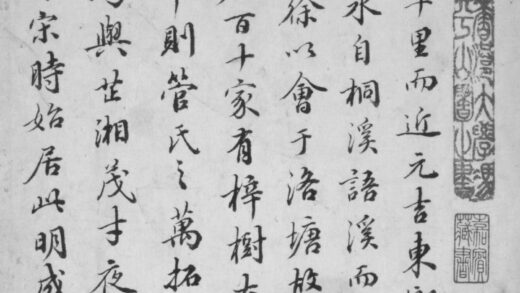 里而近元吉東
水自桐溪語溪而
徐以會于洛塘故
百十家有梓樹
則管氏之萬拓
與芷湘茂才夜
宋時始居此明成
藏書